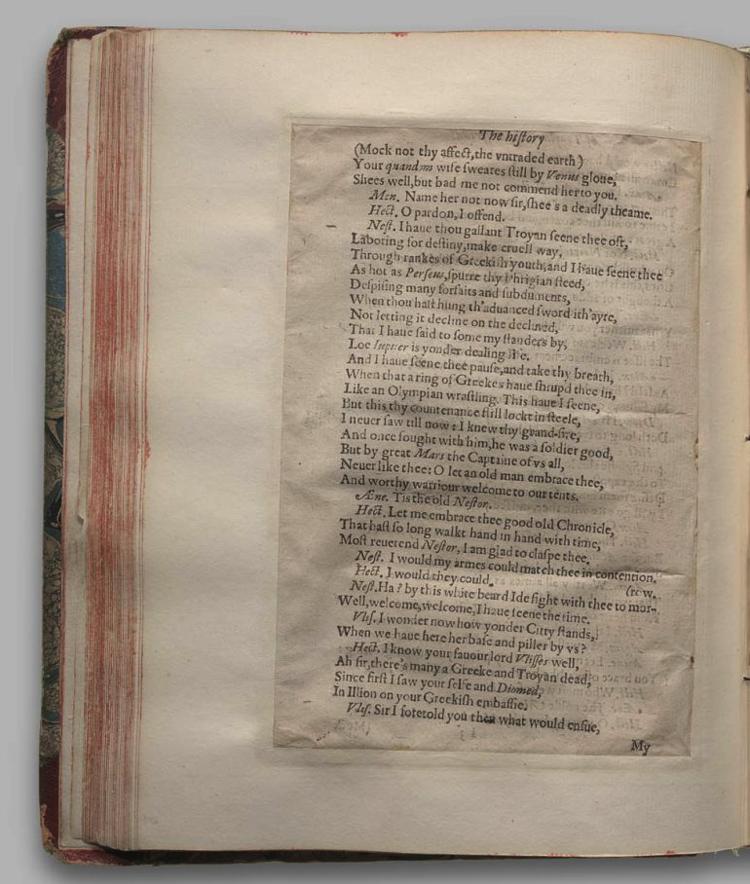 The hiſtory
(Mock not thy affect,the vntraded earth)
Your quandm wife ſweares ſtill by Venus gloue,
Shees well,but bad me not commend her to you.
Men. Name her not now ſir,ſhee's a deadly theame.
Hect. O pardon, I offend.
Neſt. I haue thou gallant Troyan ſeene thee oft,
Laboring for deſtiny,make cruell way,
Through rankes of Greekiſh youth,and I haue ſeene thee
As hot as Perſeus,ſpurre thy Phrigian ſteed,
Deſpiſing many forfaits and ſubduments,
When thou haſt hung th'aduanced ſword ith'ayre,
Not letting it decline on the declined,
That I haue ſaid to ſome my ſtanders by,
Loe Iupiter is yonder dealing life.
And I haue ſeene thee pauſe,and take thy breath,
When that a ring of Greekes haue ſhrupd thee in,
Like an Olympian wraſtling. This haue I ſeene,
But this thy countenance ſtill lockt in ſteele,
I neuer ſaw till now: I knew thy grand-ſire,
And once fought with him,he was a ſoldier good,
But by great Mars the Captaine of vs all,
Neuer like thee: O let an old man embrace thee,
And worthy warriour welcome to our tents.
Æne. Tis the old Neſtor.
Hect. Let me embrace thee good old Chronicle,
That haſt ſo long walkt hand in hand with time,
Moſt reuerend Neſtor, I am glad to claſpe thee.
Neſt. I would my armes could match thee in contention.
Hect. I would they could.
(row.
Neſt. Ha? by this white beard Ide fight with thee to mor-
Well,welcome,welcome,I haue ſeene the time.
Vliſ. I wonder now how yonder Citty ſtands,
When we haue here her baſe and piller by vs?
Hect. I know your fauour lord Vliſſes well,
Ah ſir,there's many a Greeke and Troyan dead,
Since firſt I ſaw your ſelfe and Diomed,
In Illion on your Greekiſh embaſſie.
Vliſ. Sir I foretold you then what would enſue,
My